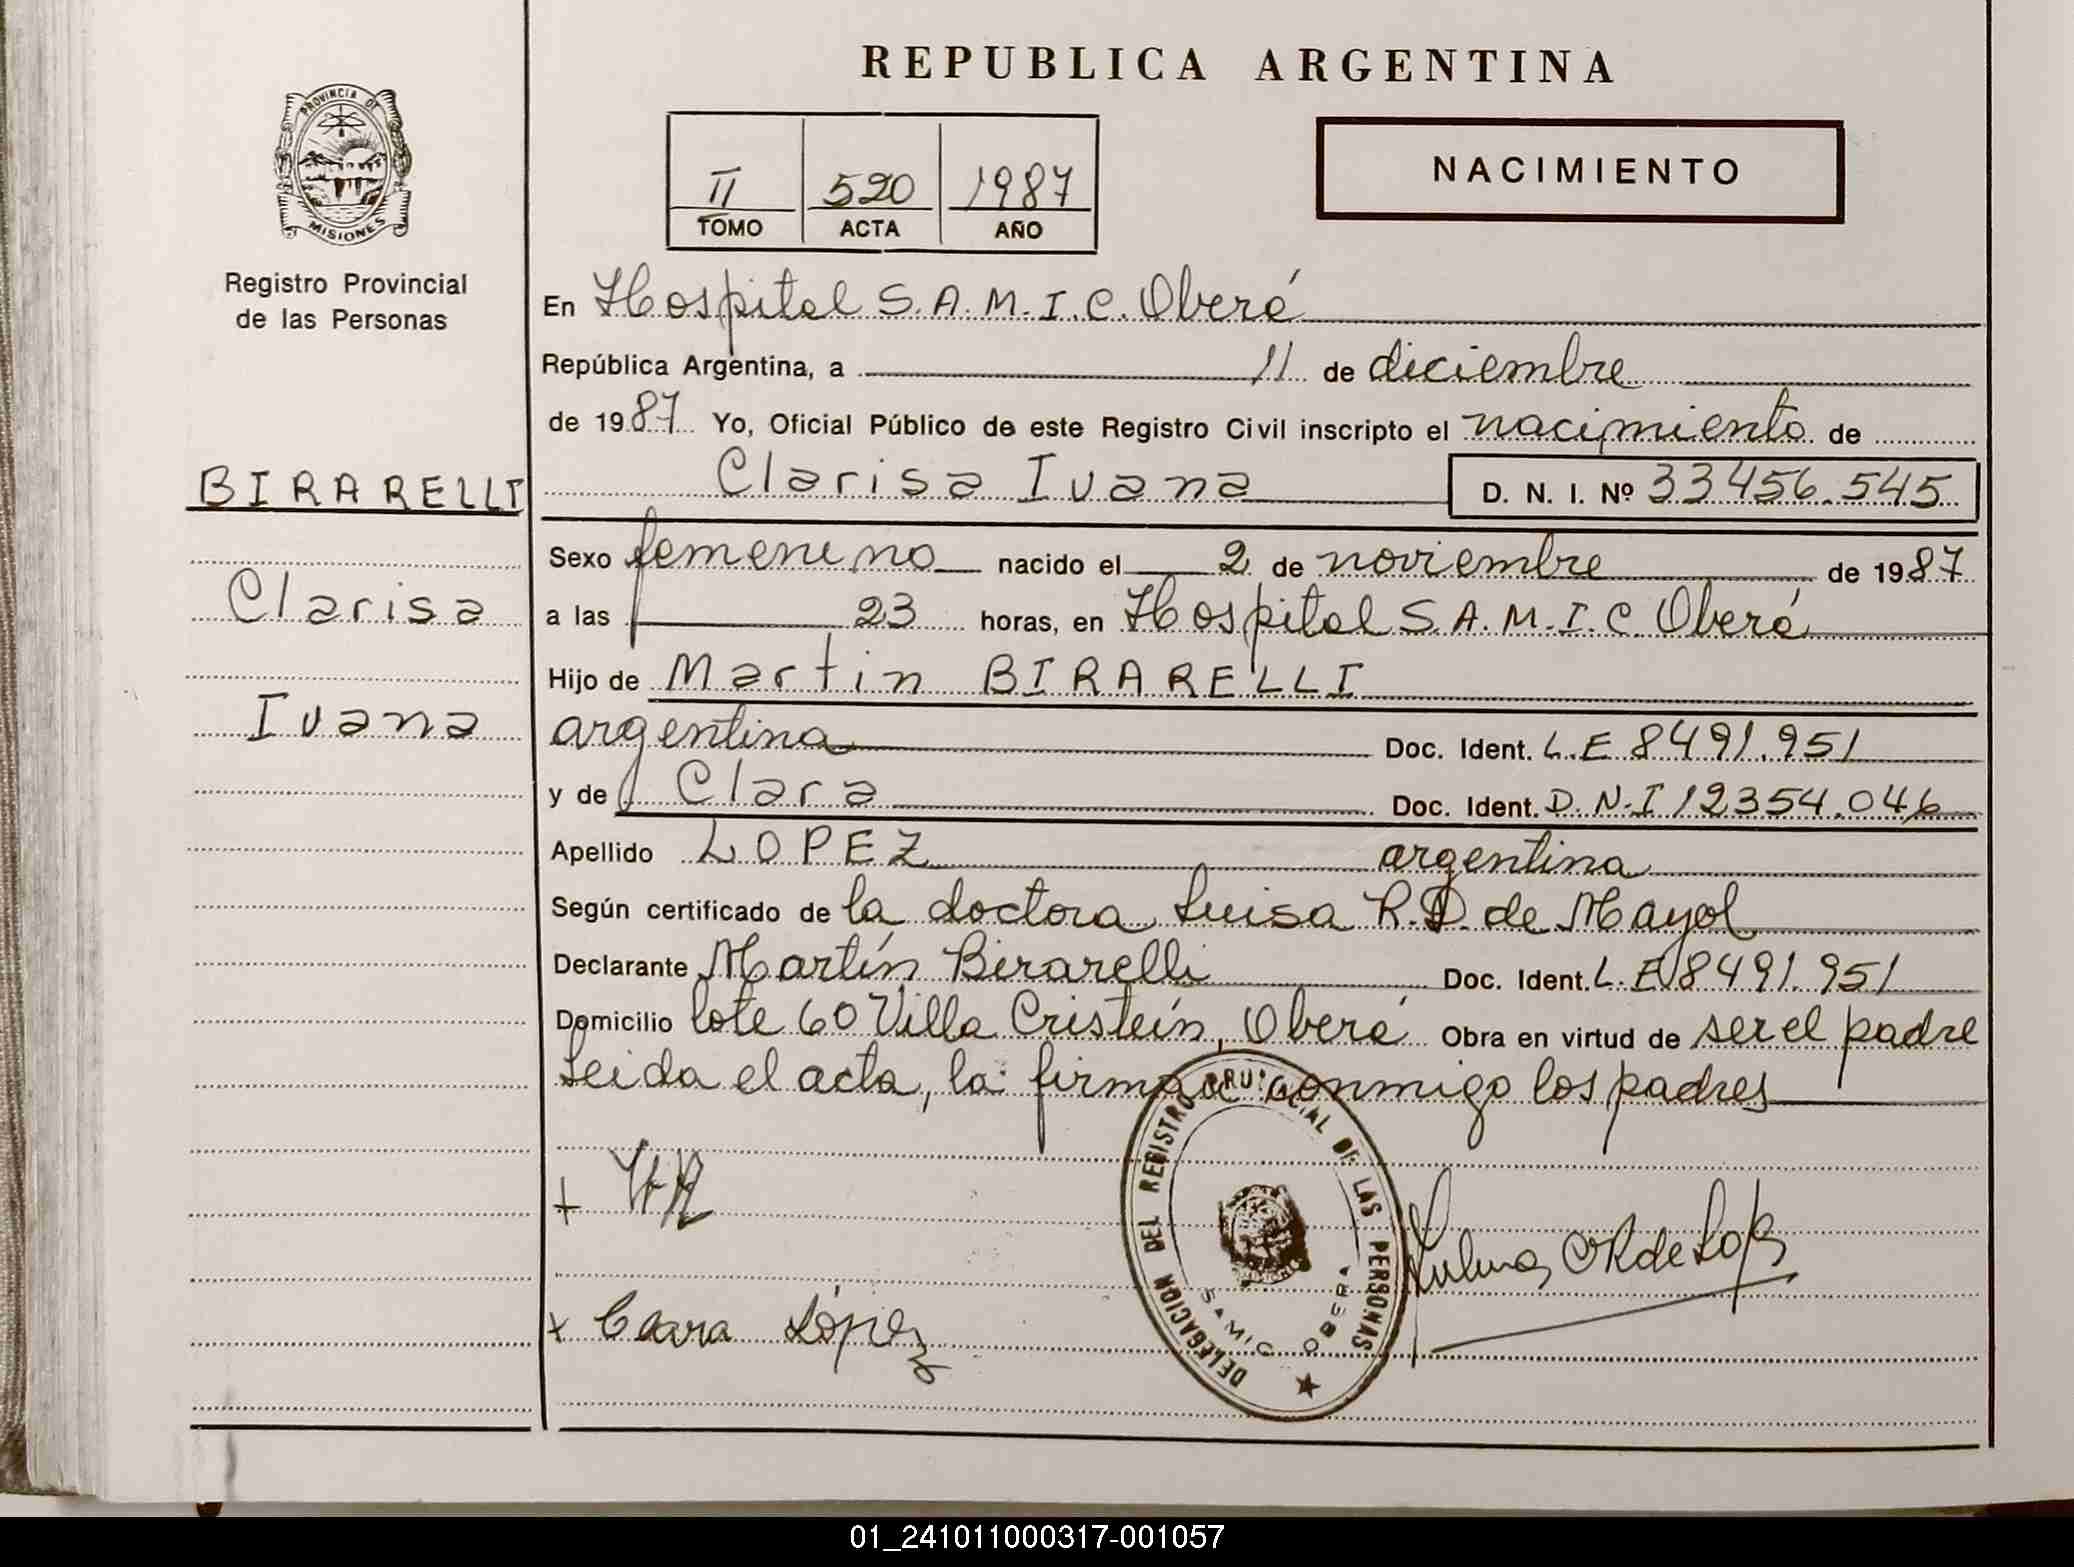 REPUBLICA ARGENTINA
PROVINCIA DE
MISIONES
Registro Provincial
de las Personas
II 520 1987
TOMO ACTA AÑO
NACIMIENTO
En Hospital S.A.M.I.C. Oberá
República Argentina, a 11 de diciembre
de 1987 Yo, Oficial Público de este Registro Civil inscripto el nacimiento de
BIRARELLI
Clarisa Ivana D. N. I. Nº 33456.545
Sexo femenino nacido el 2 de noviembre de 1987
Clarisa
a las 23 horas, en Hospital S.A.M.I.C. Oberá
Hijo de Martin BIRARELLI
Ivana
argentina Doc. Ident. L.E 8491.951
y de Clara Doc. Ident. D.N.I 12354.046
Apellido LOPEZ argentina
Según certificado de la doctora Luisa R.D. de Mayol
Declarante Martín Birarelli Doc. Ident. L.E 8491.951
Domicilio lote 60 Villa Cristein, Oberá Obra en virtud de ser el padre
Leida el acta, la firman conmigo los padres
DELEGACION DEL REGISTRO PROVINCIAL DE LAS PERSONAS
SAMIC OBERA
+
x Clara López
01_241011000317-001057